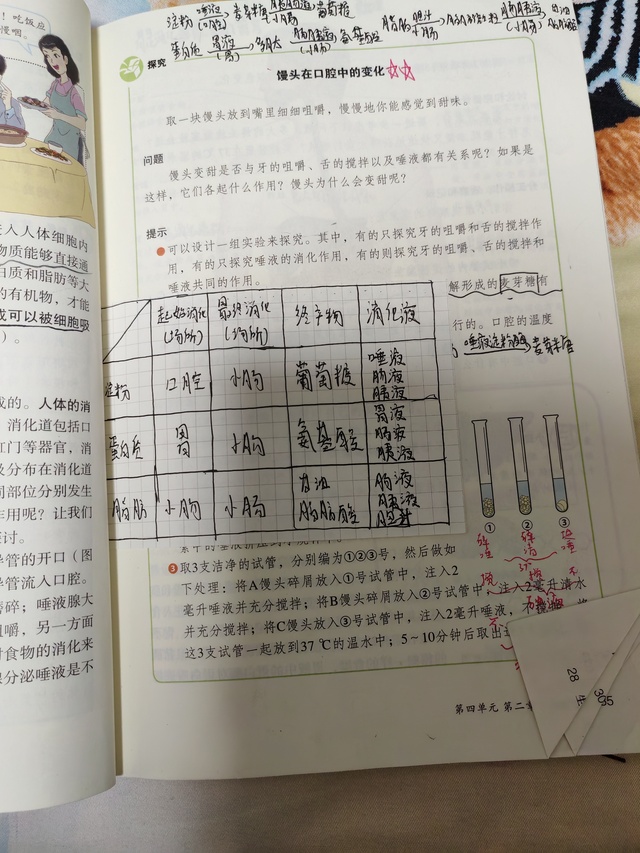 ！吃饭应
慢咽。
淀粉 唾液(口腔) 麦芽糖 (小肠) 葡萄糖
蛋白质 胃液(胃) 多肽 (小肠) 氨基酸
脂肪 胆汁 小肠
探究
馒头在口腔中的变化☆☆
取一块馒头放到嘴里细细咀嚼，慢慢地你能感觉到甜味。
问题
馒头变甜是否与牙的咀嚼、舌的搅拌以及唾液都有关系呢？如果是
这样，它们各起什么作用？馒头为什么会变甜呢？
提示
可以设计一组实验来探究。其中，有的只探究牙的咀嚼和舌的搅拌作
用，有的只探究唾液的消化作用，有的则探究牙的咀嚼、舌的搅拌和
唾液共同的作用。
解形成的麦芽糖有
行的。口腔的温度
唾液淀粉酶 麦芽糖
起始消化(场所) 最终消化(场所) 终产物 消化液
淀粉 口腔 小肠 葡萄糖 唾液 肠液 胰液
蛋白质 胃 小肠 氨基酸 胃液 肠液 胰液
脂肪 小肠 小肠 甘油 脂肪酸 肠液 胰液 胆汁
① ② ③
❸ 取3支洁净的试管，分别编为①②③号，然后做如
下处理：将A馒头碎屑放入①号试管中，注入2
毫升唾液并充分搅拌；将B馒头碎屑放入②号试管中，注入2毫升清水
并充分搅拌；将C馒头放入③号试管中，注入2毫升唾液，
这3支试管一起放到37 ℃的温水中；5～10分钟后取出
第四单元 第二
28 生
305
进入人体细胞内
物质能够直接通
白质和脂肪等大
的有机物，才能
可以被细胞吸
）。
成的。人体的消
消化道包括口
肛门等器官，消
及分布在消化道
同部位分别发生
作用呢？让我们
讨。
导管的开口（图
导管流入口腔。
碎；唾液腺大
咀嚼，另一方面
对食物的消化来
腺分泌唾液是不